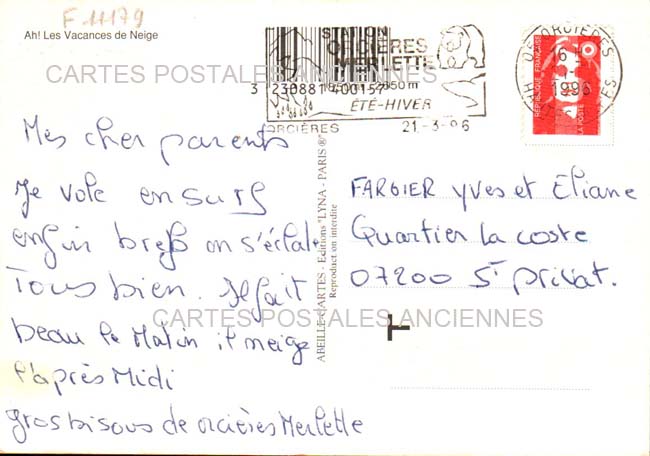 F 11179
Ah! Les Vacances de Neige
CARTES POSTALES ANCIENNES
STATION
ORCIÈRES
MERLETTE
3 230881 400157
1850m - 2650m
ÉTÉ-HIVER
ORCIÈRES
21-3-96
DE ORCIÈRES
1996
RÉPUBLIQUE FRANÇAISE
LA POSTE
Mes cher parents
Je vole en surf
enfin bref on s'éclate
Tous bien. Il fait
beau le Matin il neige
l'après Midi
gros bisous de orcières Merlette
ABEILLE-CARTES - Editions "LYNA - PARIS ®"
Reproduction interdite
FARGIER Yves et Eliane
Quartier la coste
07200 St Privat.
CARTES POSTALES ANCIENNES